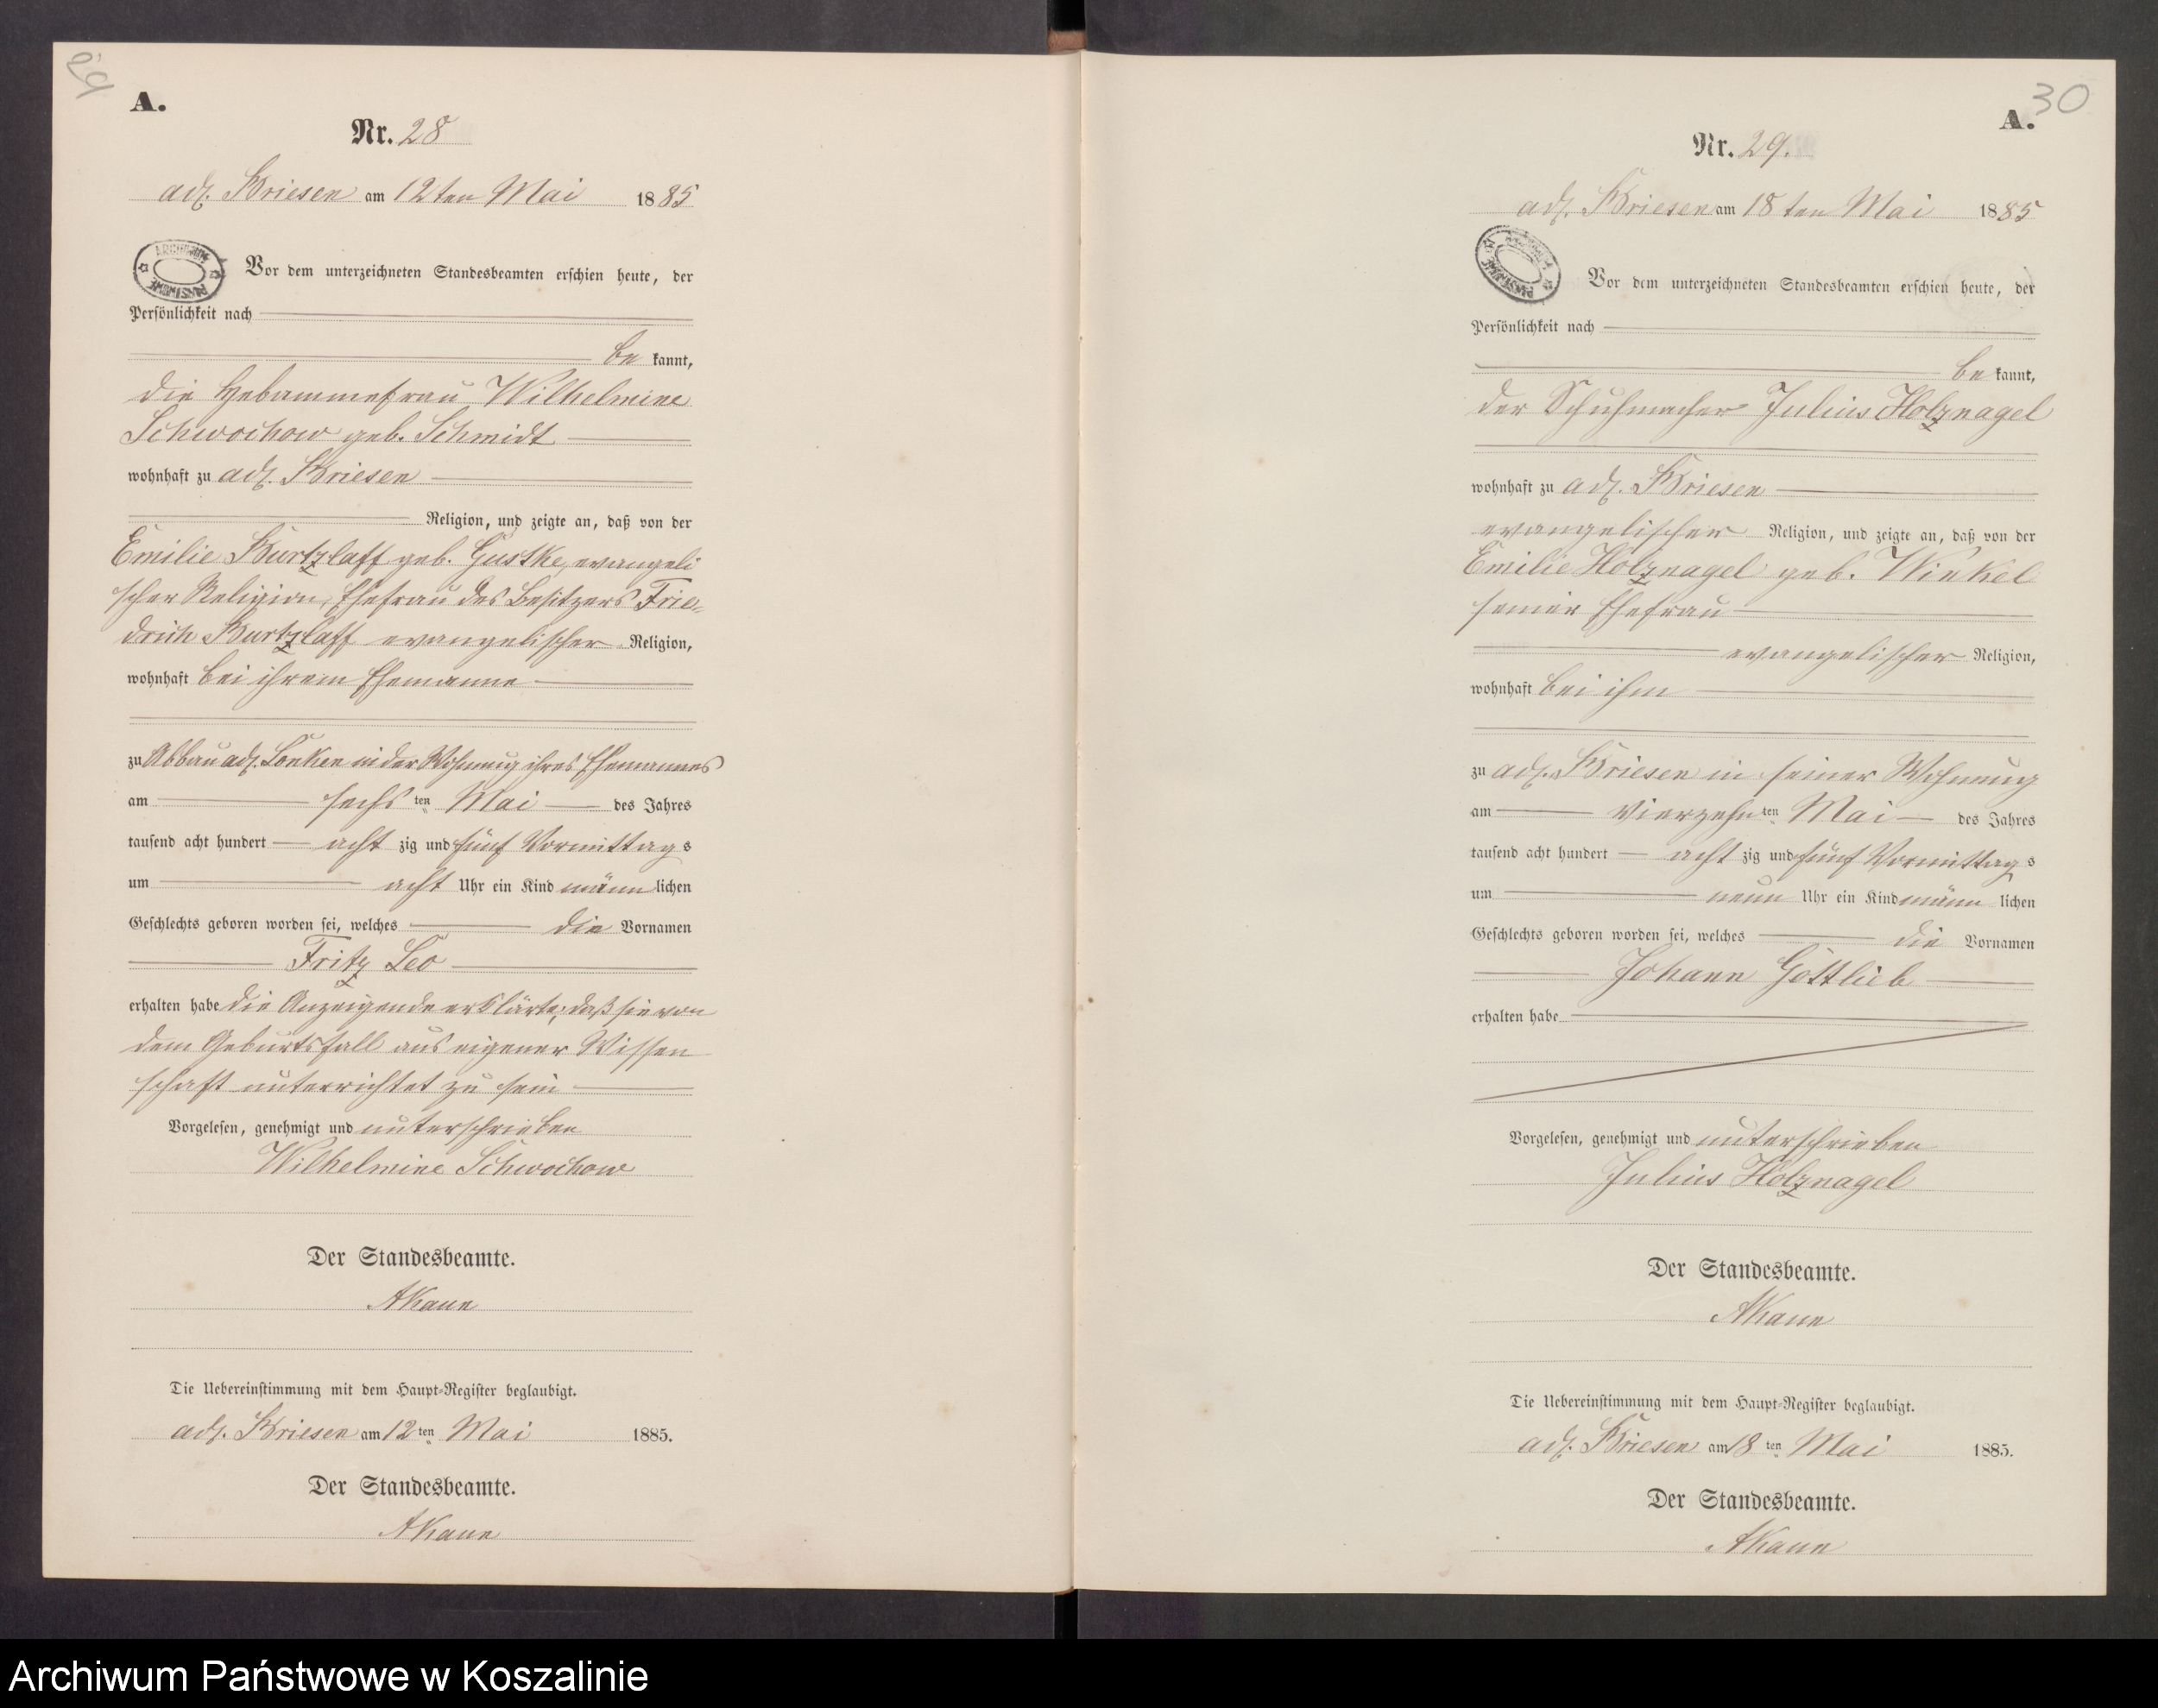 29
A.
Nr. 28
adl. Briesen am 12ten Mai 1885
Vor dem unterzeichneten Standesbeamten erschien heute, der
Persönlichkeit nach
be kannt,
die Hebammefrau Wilhelmine
Schwochow geb. Schmidt
wohnhaft zu adl. Briesen
Religion, und zeigte an, daß von der
Emilie Burtzlaff geb. Gustke, evangeli
scher Religion, Ehefrau des Besitzers Frie-
drich Burtzlaff evangelischer Religion,
wohnhaft bei ihrem Ehemanne
zu Abbau adl. Lonken in der Wohnung ihres Ehemannes
am sechs ten Mai des Jahres
tausend acht hundert acht zig und fünf Vormittag s
um acht Uhr ein Kind männ lichen
Geschlechts geboren worden sei, welches die Vornamen
Fritz Leo
erhalten habe die Anzeigende erklärte, daß sie von
dem Geburtsfall aus eigener Wissen
schaft unterrichtet zu sein
Vorgelesen, genehmigt und unterschrieben
Wilhelmine Schwochow
Der Standesbeamte.
Die Uebereinstimmung mit dem Haupt-Register beglaubigt.
adl. Briesen am 12 ten Mai 1885.
Der Standesbeamte.
30
A.
Nr. 29.
adl. Briesen am 18 ten Mai 1885
Vor dem unterzeichneten Standesbeamten erschien heute, der
Persönlichkeit nach
be kannt,
der Schuhmacher Julius Holznagel
wohnhaft zu adl. Briesen
evangelischer Religion, und zeigte an, daß von der
Emilie Holznagel geb. Winkel
seiner Ehefrau
evangelischer Religion,
wohnhaft bei ihm
zu adl. Briesen in seiner Wohnung
am vierzehn ten Mai des Jahres
tausend acht hundert acht zig und fünf Vormittag s
um neun Uhr ein Kind männ lichen
Geschlechts geboren worden sei, welches die Vornamen
Johann Gottlieb
erhalten habe
Vorgelesen, genehmigt und unterschrieben
Julius Holznagel
Der Standesbeamte.
Die Uebereinstimmung mit dem Haupt-Register beglaubigt.
adl. Briesen am 18 ten Mai 1885.
Der Standesbeamte.
Archiwum Państwowe w Koszalinie